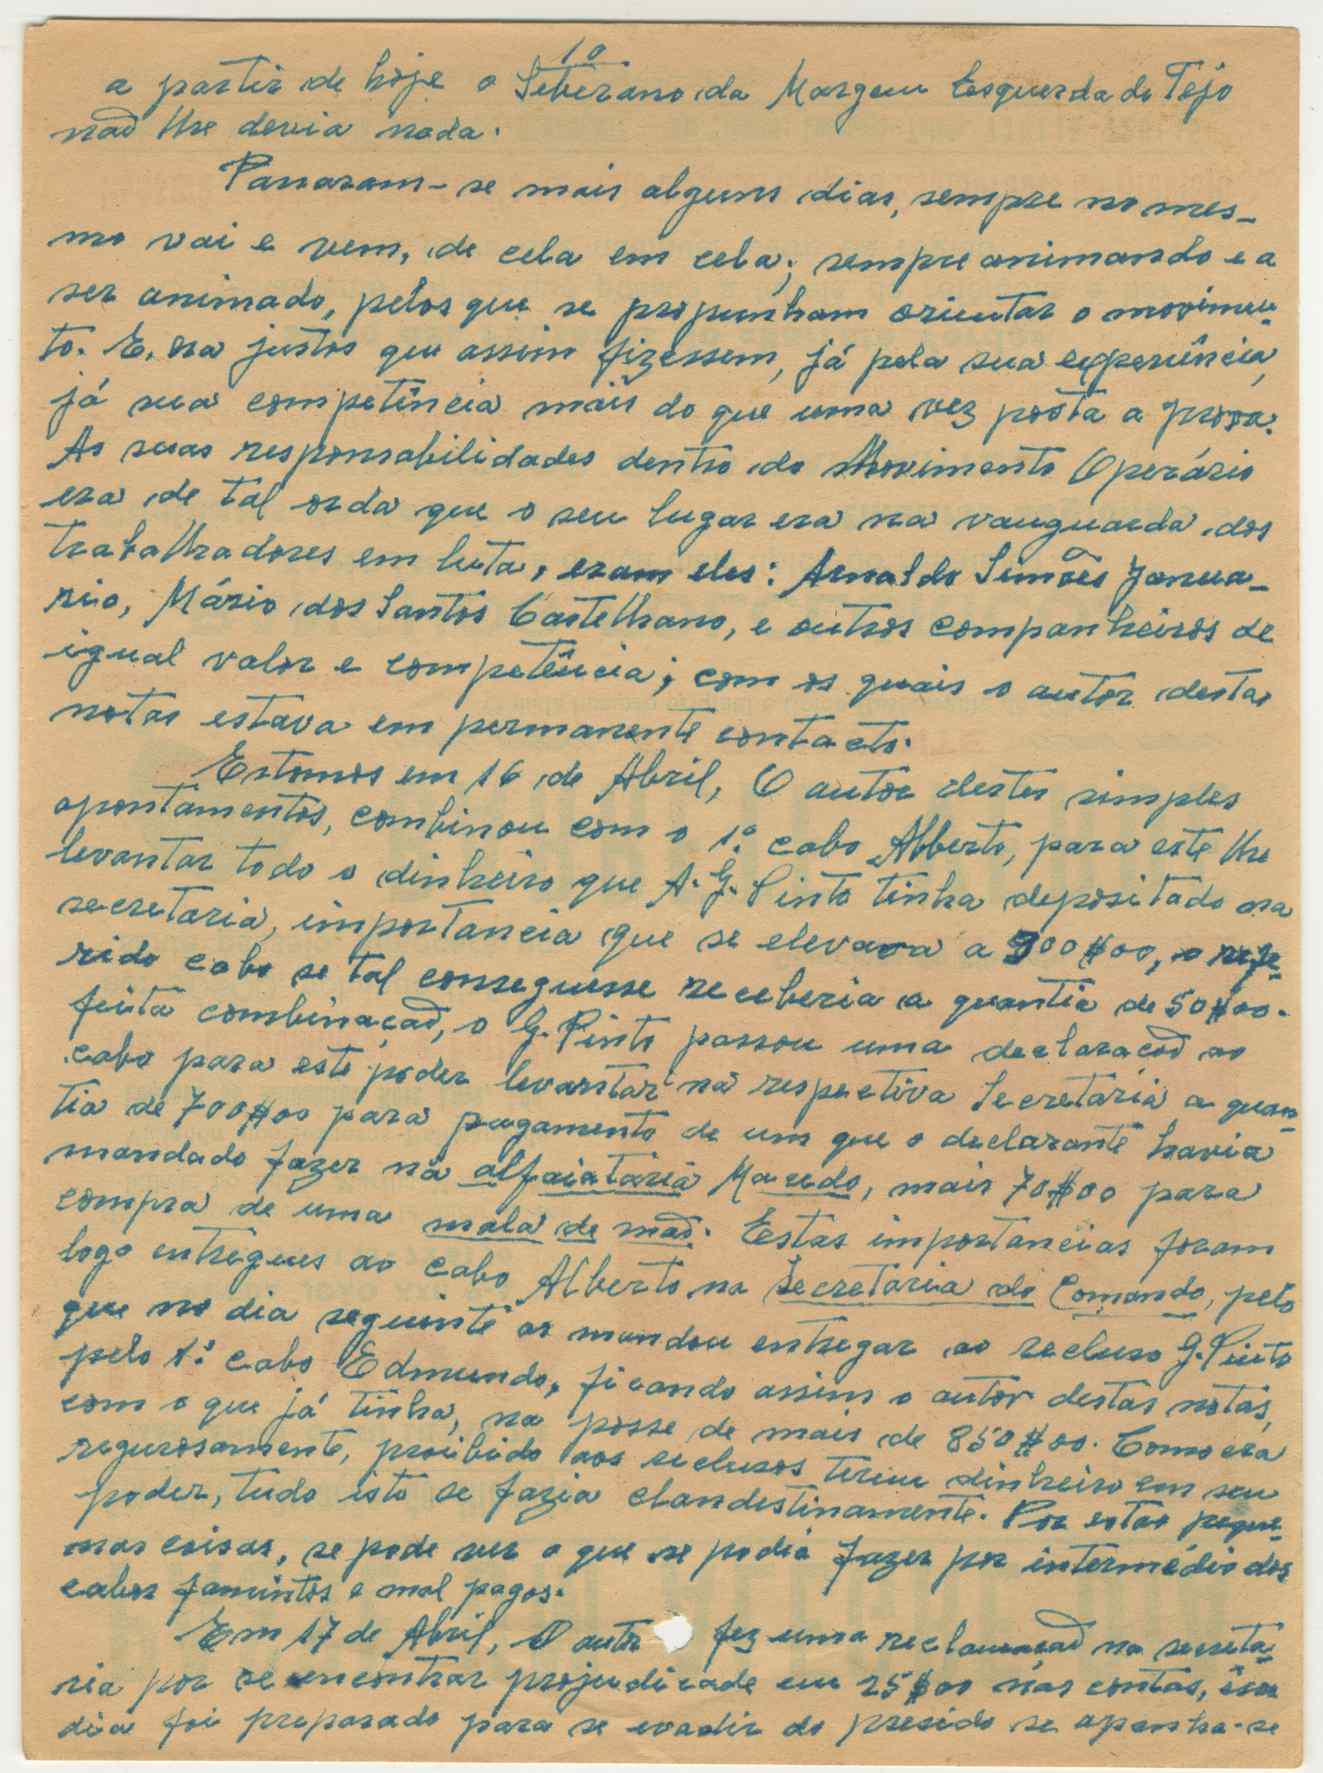 10
a partir de hoje o Siberiano da Margem Esquerda do Tejo
naõ lhe devia nada.
Passaram-se mais alguns dias, sempre no mes-
mo vai e vem, de cela em cela; sempre animando e a
ser animado, pelos que se propunham orientar o movimen-
to. E, era justos que assim fizessem, já pela sua experiência,
já sua competência mais do que uma vez posta a prova.
As suas responsabilidades dentro do Movimento Operário
era de tal orda que o seu lugar era na vanguarda dos
trabalhadores em luta, eram eles: Arnaldo Simões Janua-
rio, Mário dos Santos Castelhano, e outros companheiros de
igual valor e competência; com os quais o autor destas
notas estava em permanente contacto.
Estamos em 16 de Abril, O autor destes simples
apontamentos, combinou com o 1º cabo Alberto, para este lhe
levantar todo o dinheiro que A. G. Pinto tinha depositado na
secretaria, importancia que se elevava a 900$00, o refe-
rido cabo se tal conseguisse receberia a quantia de 50$00.
feita combinaçaõ, o G. Pinto passou uma declaraçaõ ao
cabo para este poder levantar na respectiva Secretária a quan-
tia de 700$00 para pagamento de um que o declarante havia
mandado fazer na alfaiataria Macedo, mais 70$00 para
compra de uma mala de maõ. Estas importancias foram
logo entregues ao cabo Alberto na Secretária do Comando, pelo
que no dia seguinte as mandou entregar ao recluso G. Pinto
pelo 1º cabo Edmundo, ficando assim o autor destas notas,
com o que já tinha, na posse de mais de 850$00. Como era
regurosamente, proibido aos reclusos terem dinheiro em seu
poder, tudo isto se fazia clandestinamente. Por estas peque-
nas coisas, se pode ver o que se podia fazer por intermédio dos
cabos famintos e mal pagos.
Em 17 de Abril, O autor fez uma reclamaçaõ na secreta-
ria por se encontrar projudicade em 25$00 nas contas,
dia foi preparado para se evadir do presido se apanha-se